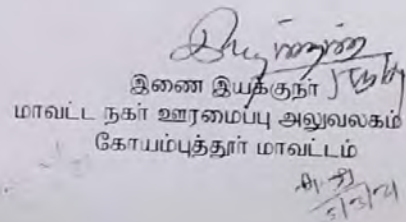 இணை இயக்குநர்
மாவட்ட நகர் ஊரமைப்பு அலுவலகம்
கோயம்புத்தூர் மாவட்டம்
5/3/21